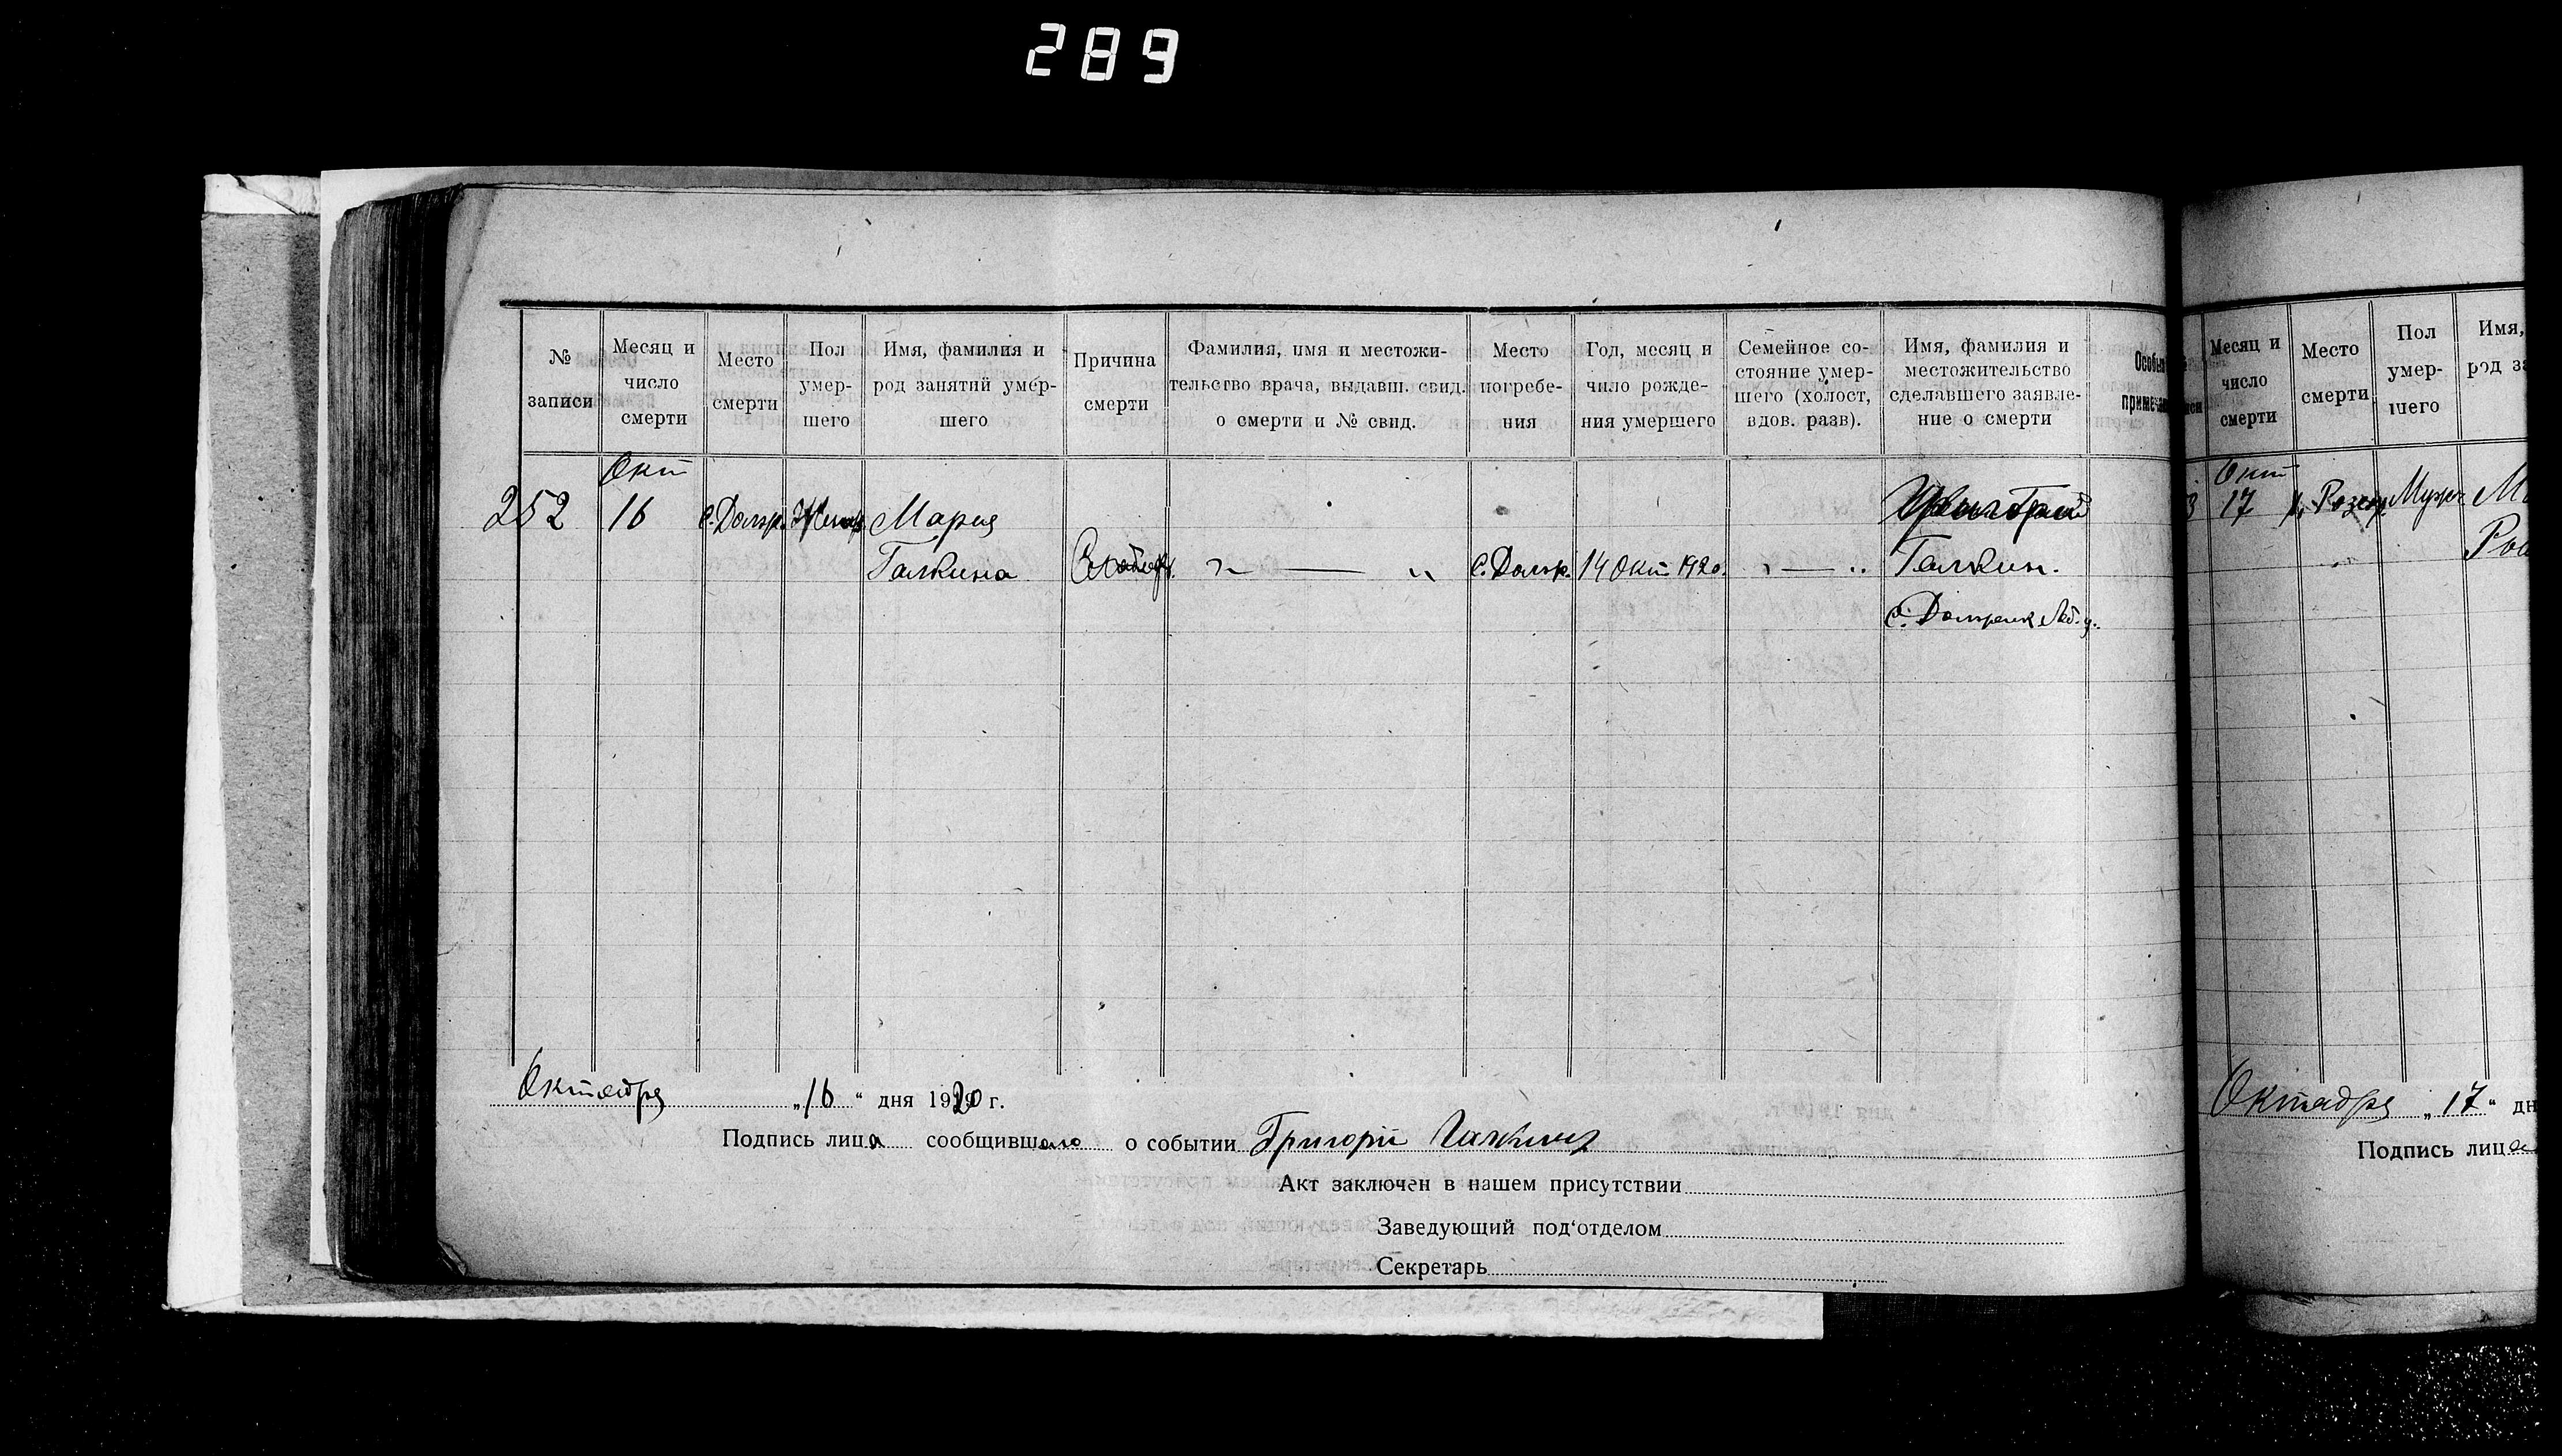 289
№ записи
Месяц и число смерти
Место смерти
Пол умер-шего
Имя, фамилия и род занятий умер-шего
Причина смерти
Фамилия, имя и местожи-тельство врача, выдавш. свид. о смерти и № свид.
Место погребе-ния
Год, месяц и число рожде-ния умершего
Семейное со-стояние умер-шего (холост, вдов. разв).
Имя, фамилия и местожительство сделавшего заявле-ние о смерти
Особы
примечан
Окт
252 16 Мария
Галкина 14 Окт 1920. Галкин.
Октября „16“ дня 1920 г.
Подпись лица сообщившаго о событии Григорий Галкин
Акт заключен в нашем присутствии
Заведующий под‘отделом
Секретарь
Месяц и число смерти
Место смерти
Пол умер-шего
Имя,
род за
Окт
17 Муж
Октября „17“ дн
Подпись лица